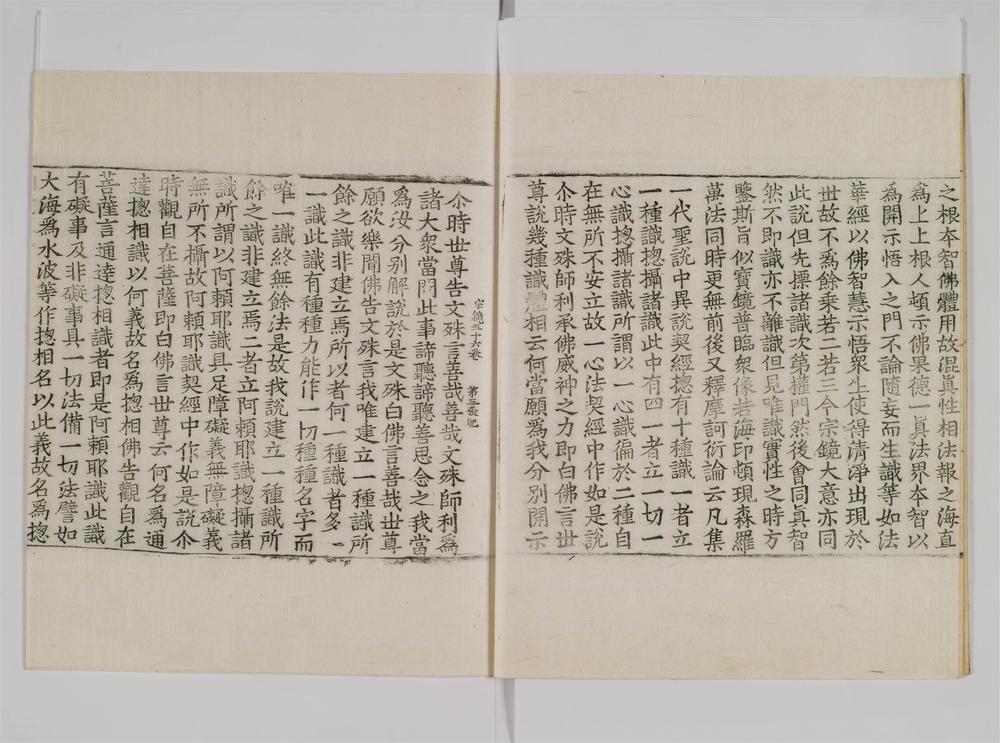 之根本智佛體用故混眞性相法報之海直
爲上上根人頓示佛果德一真法界本智以
爲開示悟入之門不論隨妄而生識等如法
華經以佛智慧示悟衆生使得清淨出現於
世故不爲餘乗若二若三今宗鏡大意亦同
此說但先摽諸識次第權門然後會同眞智
然不即識亦不離識但見唯識實性之時方
鑒斯旨似寶鏡普臨衆像若海印頓現森羅
萬法同時更無前後又釋摩訶衍論云凡集
一代聖說中異說契經揔有十種識一者立
一種識揔攝諸識此中有四一者立一切一
心識揔攝諸識所謂以一心識徧於二種自
在無所不安立故一心法契經中作如是說
尒時文殊師利承佛威神之力即白佛言世
尊說幾種識體相云何當願爲我分別開示
宗鏡五十六卷 第三張 肥
尒時世尊告文殊言善哉善哉文殊師利爲
諸大衆當問此事諦聽諦聽善思念之我當
爲汝分別解說於是文殊白佛言善哉世尊
願欲樂聞佛告文殊言我唯建立一種識所
餘之識非建立焉所以者何一種識者多一
一識此識有種種力能作一切種種名字而
唯一識終無餘法是故我說建立一種識所
餘之識非建立焉二者立阿頼耶識揔攝諸
識所謂以阿頼耶識具足障礙義無障礙義
無所不攝故阿頼耶識契經中作如是說尒
時觀自在菩薩即白佛言世尊云何名爲通
達揔相識以何義故名爲揔相佛告觀自在
菩薩言通達揔相識者即是阿頼耶識此識
有礙事及非礙事具一切法備一切法譬如
大海爲水波等作揔相名以此義故名爲揔